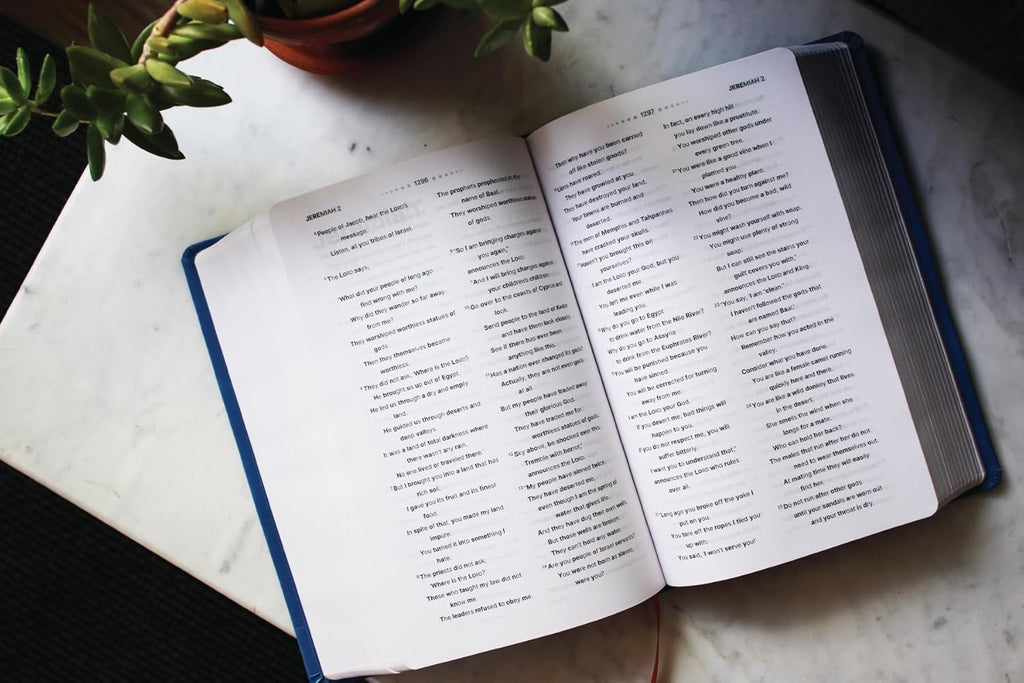 JEREMIAH 2
1296
4 People of Jacob, hear the LORD's
message.
Listen, all you tribes of Israel.
5 The LORD says,
"What did your people of long ago
find wrong with me?
Why did they wander so far away
from me?
They worshiped worthless statues of
gods.
Then they themselves became
worthless.
6 They did not ask, 'Where is the LORD?
He brought us up out of Egypt.
He led us through a dry and empty
land.
He guided us through deserts and
deep valleys.
It was a land of total darkness where
there wasn't any rain.
No one lived or traveled there.'
7 "But I brought you into a land that has
rich soil.
I gave you its fruit and its finest
food.
In spite of that, you made my land
impure.
You turned it into something I
hate.
8 The priests did not ask,
'Where is the LORD?'
Those who taught my law did not
know me.
The leaders refused to obey me.
The prophets prophesied in the
name of Baal.
They worshiped worthless statues
of gods.
9 "So I am bringing charges against
you again,"
announces the LORD.
"And I will bring charges against
your children's children.
10 Go over to the coasts of Cyprus and
look.
Send people to the land of Kedar
and have them look closely.
See if there has ever been
anything like this.
11 Has a nation ever changed its gods?
Actually, they are not even gods
at all.
But my people have traded away
their glorious God.
They have traded me for
worthless statues of gods.
12 Sky above, be shocked over this.
Tremble with horror,"
announces the LORD.
13 "My people have sinned twice.
They have deserted me,
even though I am the spring of
water that gives life.
And they have dug their own wells.
But those wells are broken.
They can't hold any water.
14 Are you people of Israel servants?
You were not born as slaves,
were you?
1297
JEREMIAH 2
Then why have you been carried
off like stolen goods?
15 Lions have roared.
They have growled at you.
They have destroyed your land.
Your towns are burned and
deserted.
16 The men of Memphis and Tahpanhes
have cracked your skulls.
17 Haven't you brought this on
yourselves?
I am the LORD your God, but you
deserted me.
You left me even while I was
leading you.
18 Why do you go to Egypt
to drink water from the Nile River?
Why do you go to Assyria
to drink from the Euphrates River?
19 You will be punished because you
have sinned.
You will be corrected for turning
away from me.
I am the LORD your God.
If you desert me, bad things will
happen to you.
If you do not respect me, you will
suffer bitterly.
I want you to understand that,"
announces the LORD who rules
over all.
20 "Long ago you broke off the yoke I
put on you.
You tore off the ropes I tied you
up with.
You said, 'I won't serve you!'
In fact, on every high hill
you lay down like a prostitute.
You worshiped other gods under
every green tree.
21 You were like a good vine when I
planted you.
You were a healthy plant.
Then how did you turn against me?
How did you become a bad, wild
vine?
22 You might wash yourself with soap.
You might use plenty of strong
soap.
But I can still see the stains your
guilt covers you with,"
announces the LORD and King.
23 "You say, 'I am "clean."
I haven't followed the gods that
are named Baal.'
How can you say that?
Remember how you acted in the
valley.
Consider what you have done.
You are like a female camel running
quickly here and there.
24 You are like a wild donkey that lives
in the desert.
She smells the wind when she
longs for a mate.
Who can hold her back?
The males that run after her do not
need to wear themselves out.
At mating time they will easily
find her.
25 Do not run after other gods
until your sandals are worn out
and your throat is dry.